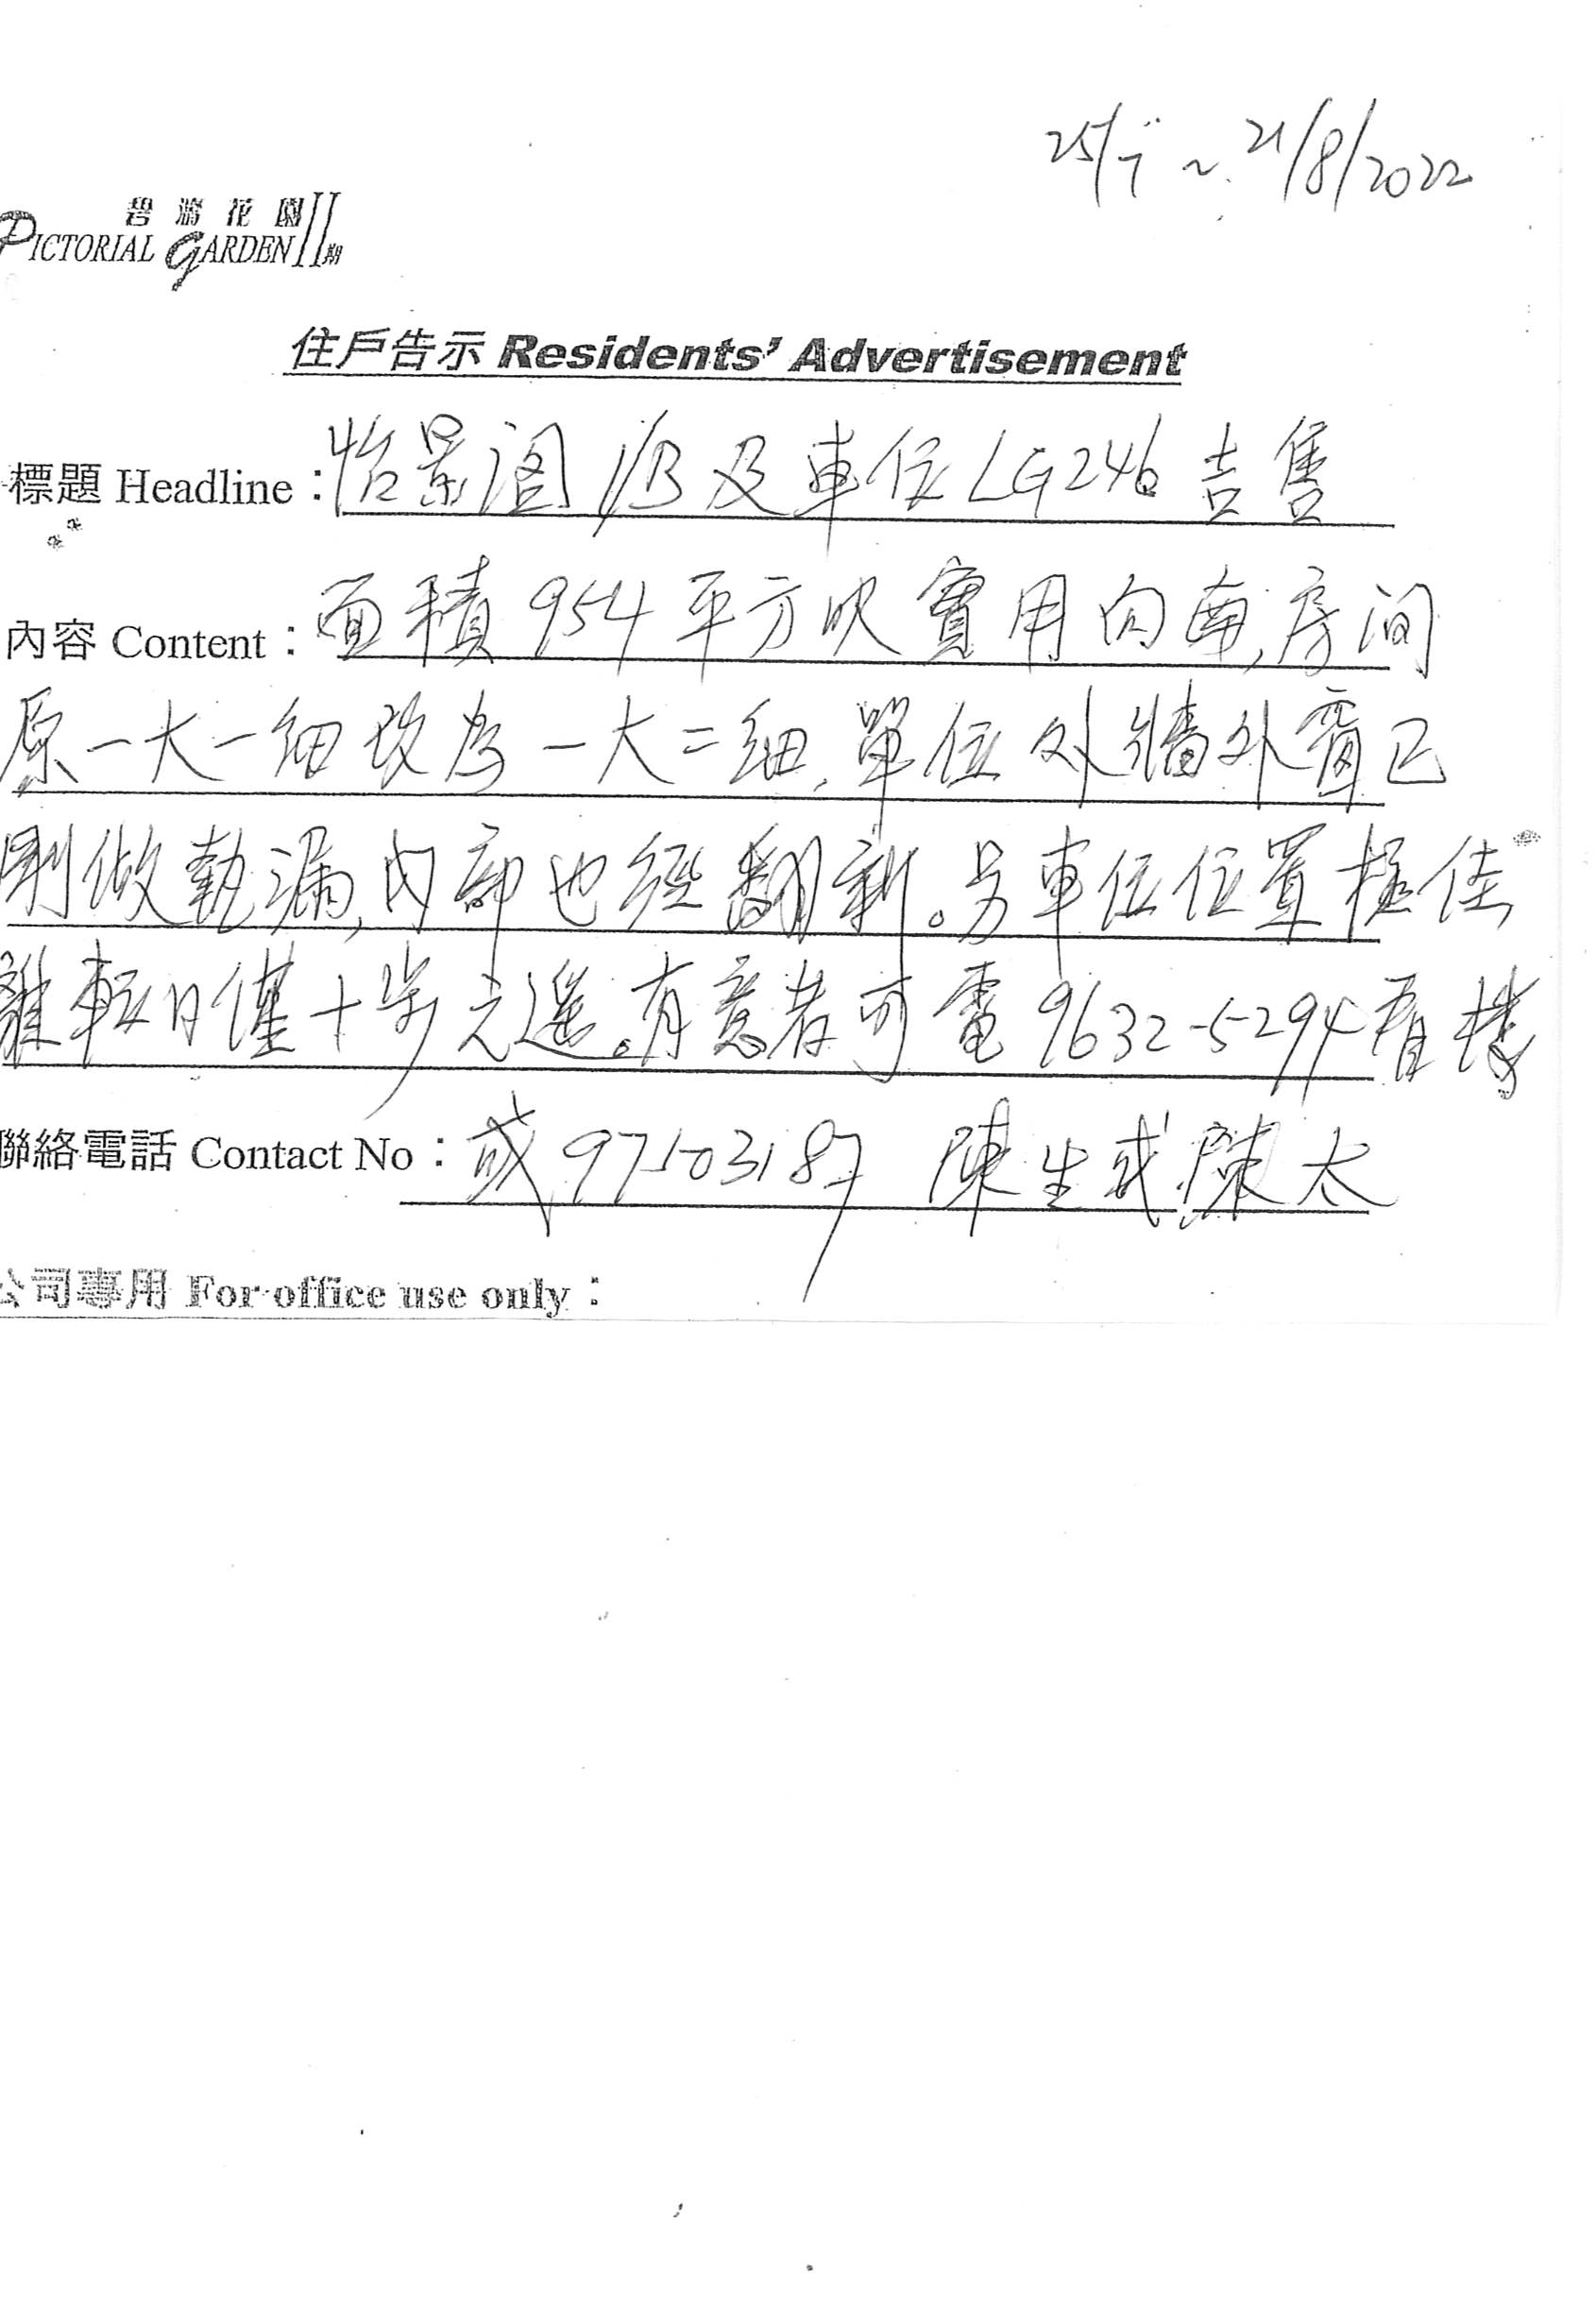 25/7 ~ 21/8/2022
碧濤花園II期
PICTORIAL GARDEN
住戶告示 Residents' Advertisement
標題 Headline：怡景阁 1/B 及車位 LG246 吉售
內容 Content：面積 954 平方呎實用向南,房间
原一大一細改為一大二細,單位外牆外窗已
剛做執漏,内部也經翻新。另車位位置極佳,
離較口僅十步之遥。有意者可電 9632-5294 看樓
聯絡電話 Contact No：或 97503187 陳生或陳太
公司專用 For office use only：